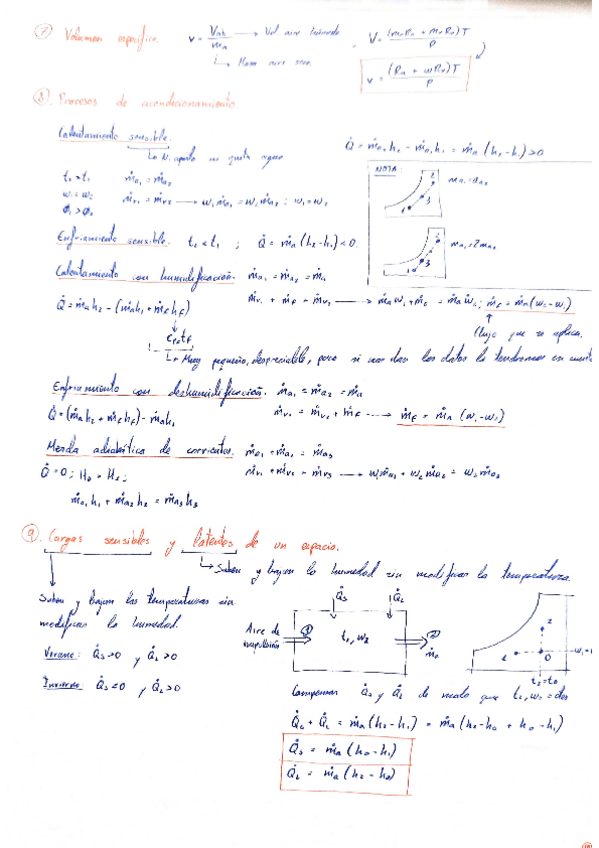 ⑦ Volumen específico. v = V_ah / m_a → Vol aire húmedo
↳ Masa aire seco.
V = (m_a R_a + m_v R_v)T / P
v = (R_a + wR_v)T / P
⑧. Procesos de acondicionamiento.
Calentamiento sensible.
↳ Ni aporta ni quita agua
Q̇ = ṁ_a₂h₂ - ṁ_a₁h₁ = ṁ_a (h₂-h₁) >0
t₂ > t₁ ṁ_a₁ = ṁ_a₂
w₁ = w₂ ṁ_v₁ = ṁ_v₂ → w₁ṁ_a₁ = w₂ṁ_a₂ ; w₁ = w₂
ϕ₁ > ϕ₂
NOTA:
1 3 2
1 3 2
m_a₁ = 2m_a₂
Enfriamiento sensible. t₂ < t₁ ; Q̇ = ṁ_a (h₂-h₁) < 0.
Calentamiento con humidificación. ṁ_a₁ = ṁ_a₂ = ṁ_a
ṁ_v₁ + ṁ_f = ṁ_v₂ → ṁ_a w₁ + ṁ_f = ṁ_a w₂ ; ṁ_f = ṁ_a (w₂-w₁)
Q̇ = ṁ_a h₂ - (ṁ_a h₁ + ṁ_f h_f)
flujo que se aplica.
↳ Muy pequeño, despreciable, pero si nos dan los datos lo tendremos en cuenta
Enfriamiento con deshumidificación. ṁ_a₁ = ṁ_a₂ = ṁ_a
Q̇ = (ṁ_a h₂ + ṁ_f h_f) - ṁ_a h₁
ṁ_v₁ = ṁ_v₂ + ṁ_f → ṁ_f = ṁ_a (w₁-w₂)
Mezcla adiabática de corrientes. ṁ_a₁ + ṁ_a₂ = ṁ_a₃
Q̇ = 0 ;
ṁ_v₁ + ṁ_v₂ = ṁ_v₃ → w₁ṁ_a₁ + w₂ṁ_a₂ = w₃ṁ_a₃
ṁ_a₁ h₁ + ṁ_a₂ h₂ = ṁ_a₃ h₃
⑨. Cargas sensibles y latentes de un espacio.
↳ Suben y bajan la humedad sin modificar la temperatura.
Suben y bajan las temperaturas sin
modificar la humedad.
Verano: Q̇_S >0 y Q̇_L >0
Invierno: Q̇_S <0 y Q̇_L >0
Q̇_S Q̇_L
Aire de
① t₂, w₂ ②
ṁ_a
2
1 0
t₂ = t₀
Compensar Q̇_S y Q̇_L de modo que t₂, w₂ = dos
Q̇_S + Q̇_L = ṁ_a (h₂-h₁) = ṁ_a (h₂-h₀ + h₀-h₁)
Q̇_S = ṁ_a (h₀-h₁)
Q̇_L = ṁ_a (h₂-h₀)